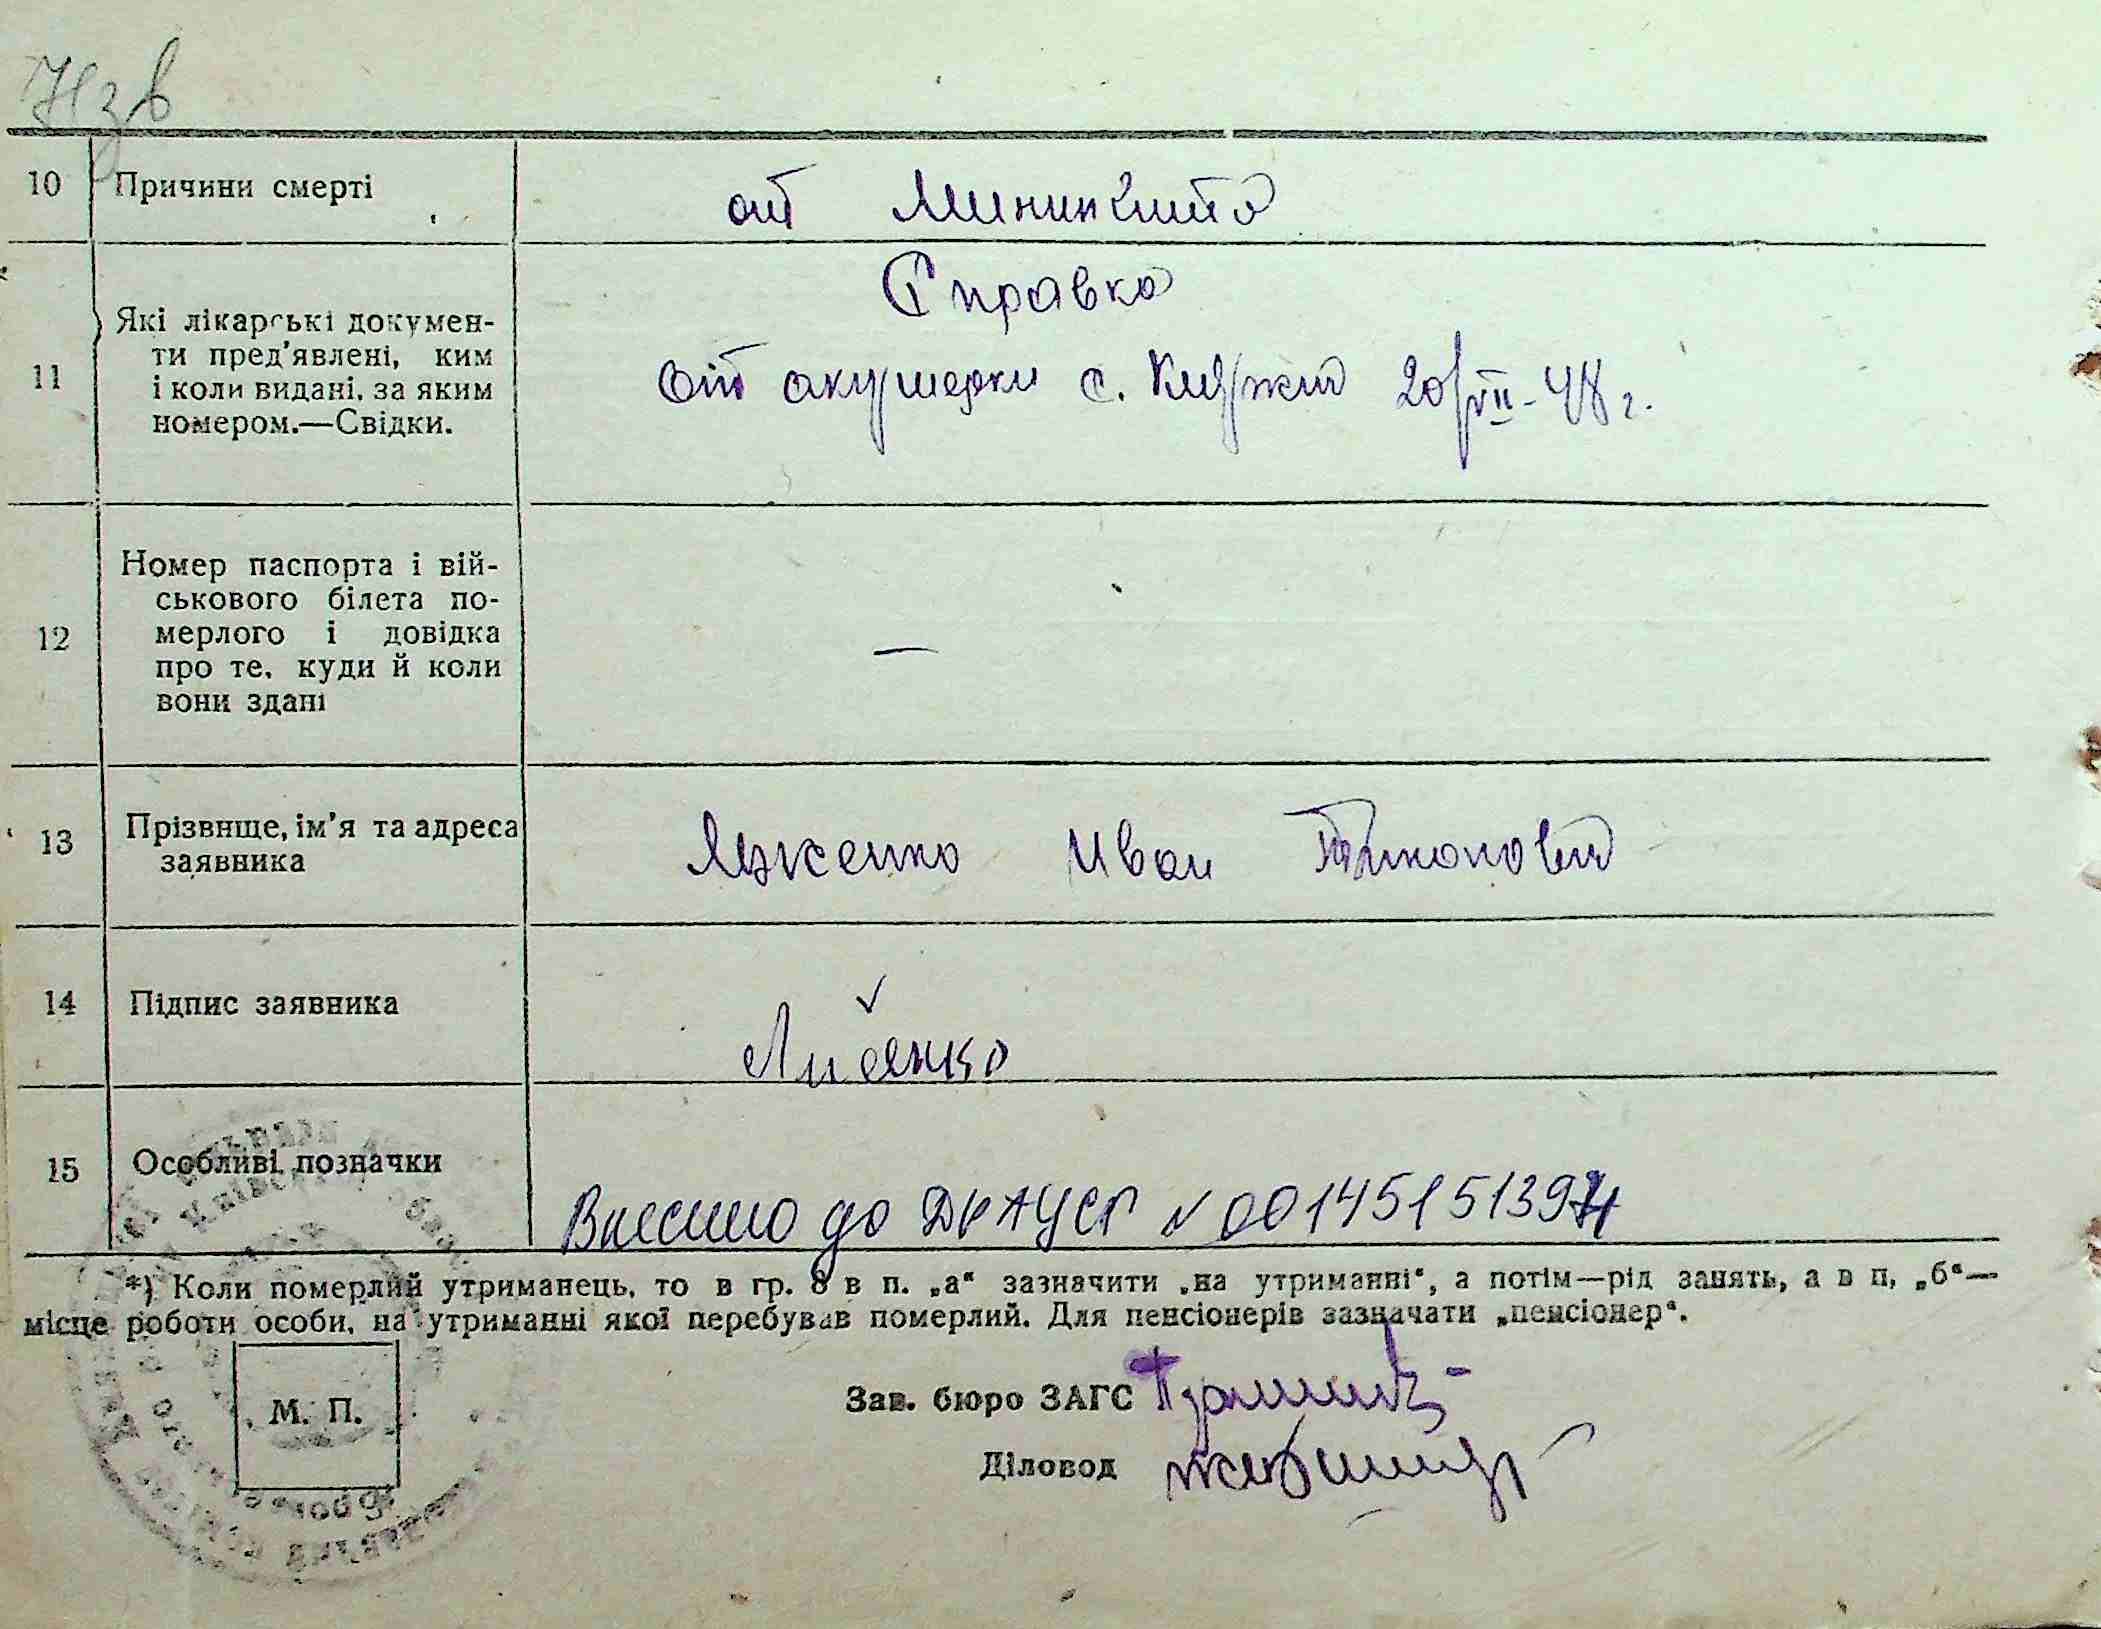 10 Причини смерті
от Менингита
11 Які лікарські докумен-
ти пред'явлені, ким
і коли видані, за яким
номером.—Свідки.
Справка
от акушерки с. 20/VII-48 г.
12 Номер паспорта і вій-
ськового білета по-
мерлого і довідка
про те, куди й коли
вони здані
—
13 Прізвище, ім'я та адреса
заявника
Иван
14 Підпис заявника
15 Особливі позначки
Внесено до ДРАЦСГ №00145151397
*) Коли померлий утриманець, то в гр. 8 в п. „а“ зазначити „на утриманні“, а потім—рід занять, а в п, „б“—
місце роботи особи, на утриманні якої перебував померлий. Для пенсіонерів зазначати „пенсіонер“.
М. П.
Зав. бюро ЗАГС
Діловод